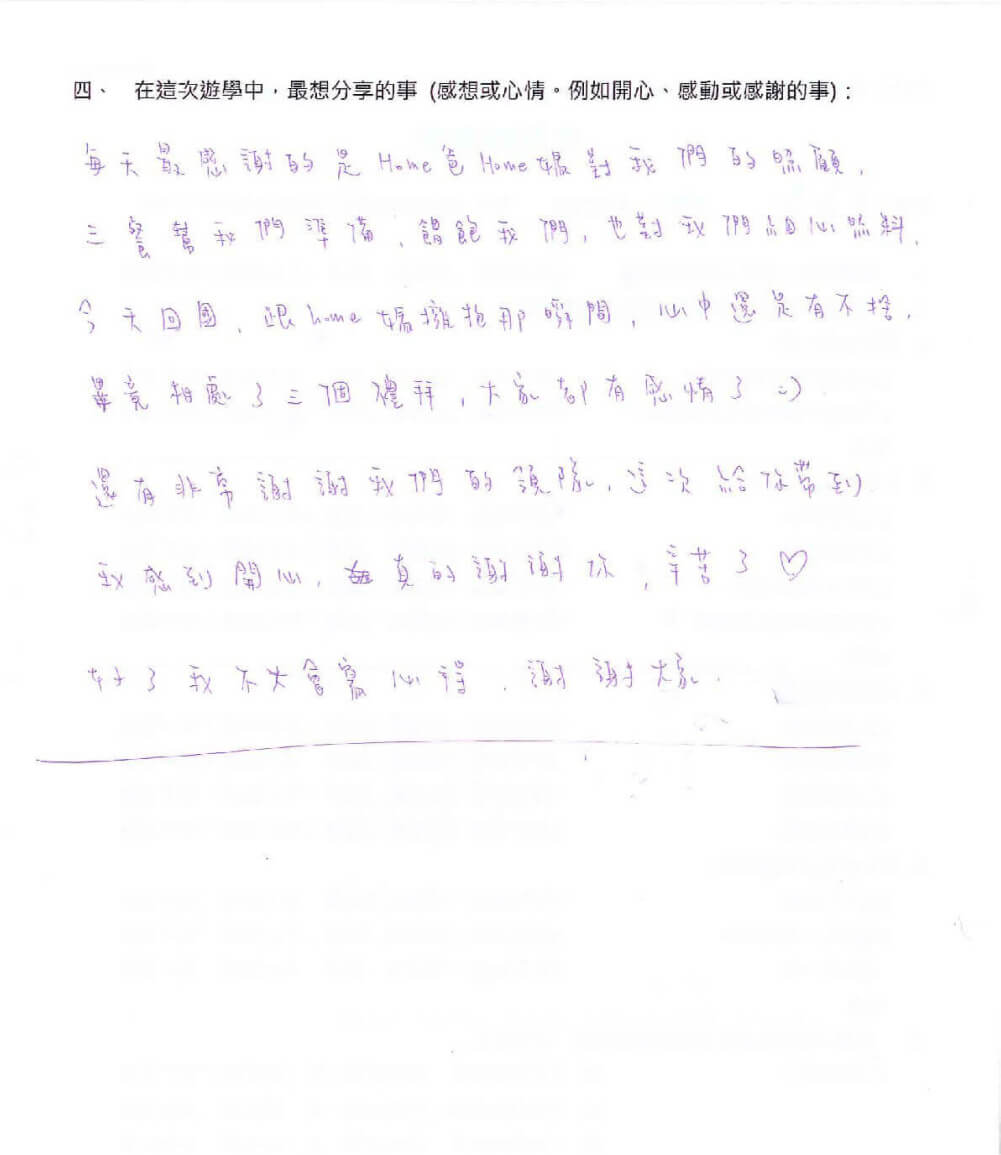 四、 在這次遊學中，最想分享的事 (感想或心情。例如開心、感動或感謝的事)：
每天最感謝的是Home爸Home媽對我們的照顧，
三餐幫我們準備，餵飽我們，也對我們細心照料，
今天回國，跟home媽擁抱那瞬間，心中還是有不捨，
畢竟相處了三個禮拜，大家都有感情了 :)
還有非常謝謝我們的領隊，這次給你帶到
我感到開心，真的謝謝你，辛苦了♡
好了我不太會寫心得，謝謝大家.